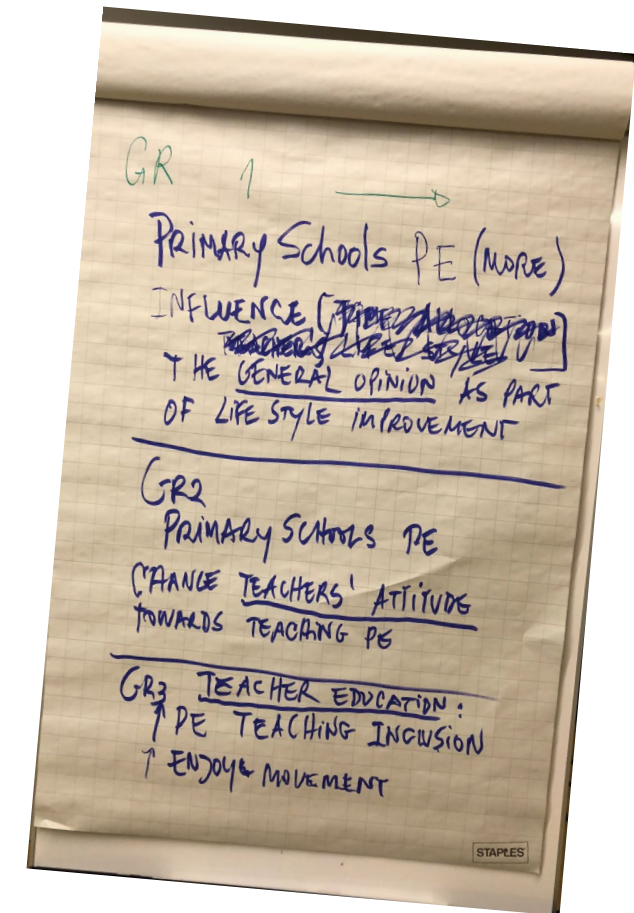 GR 1 →
PRIMARY Schools PE (MORE)
INFLUENCE [
]
THE GENERAL OPINION AS PART
OF LIFE STYLE IMPROVEMENT
GR2
PRIMARY SCHOOLS PE
CHANGE TEACHERS' ATTITUDE
TOWARDS TEACHING PE
GR3 TEACHER EDUCATION:
↑ PE TEACHING INCLUSION
↑ ENJOY MOVEMENT
STAPLES